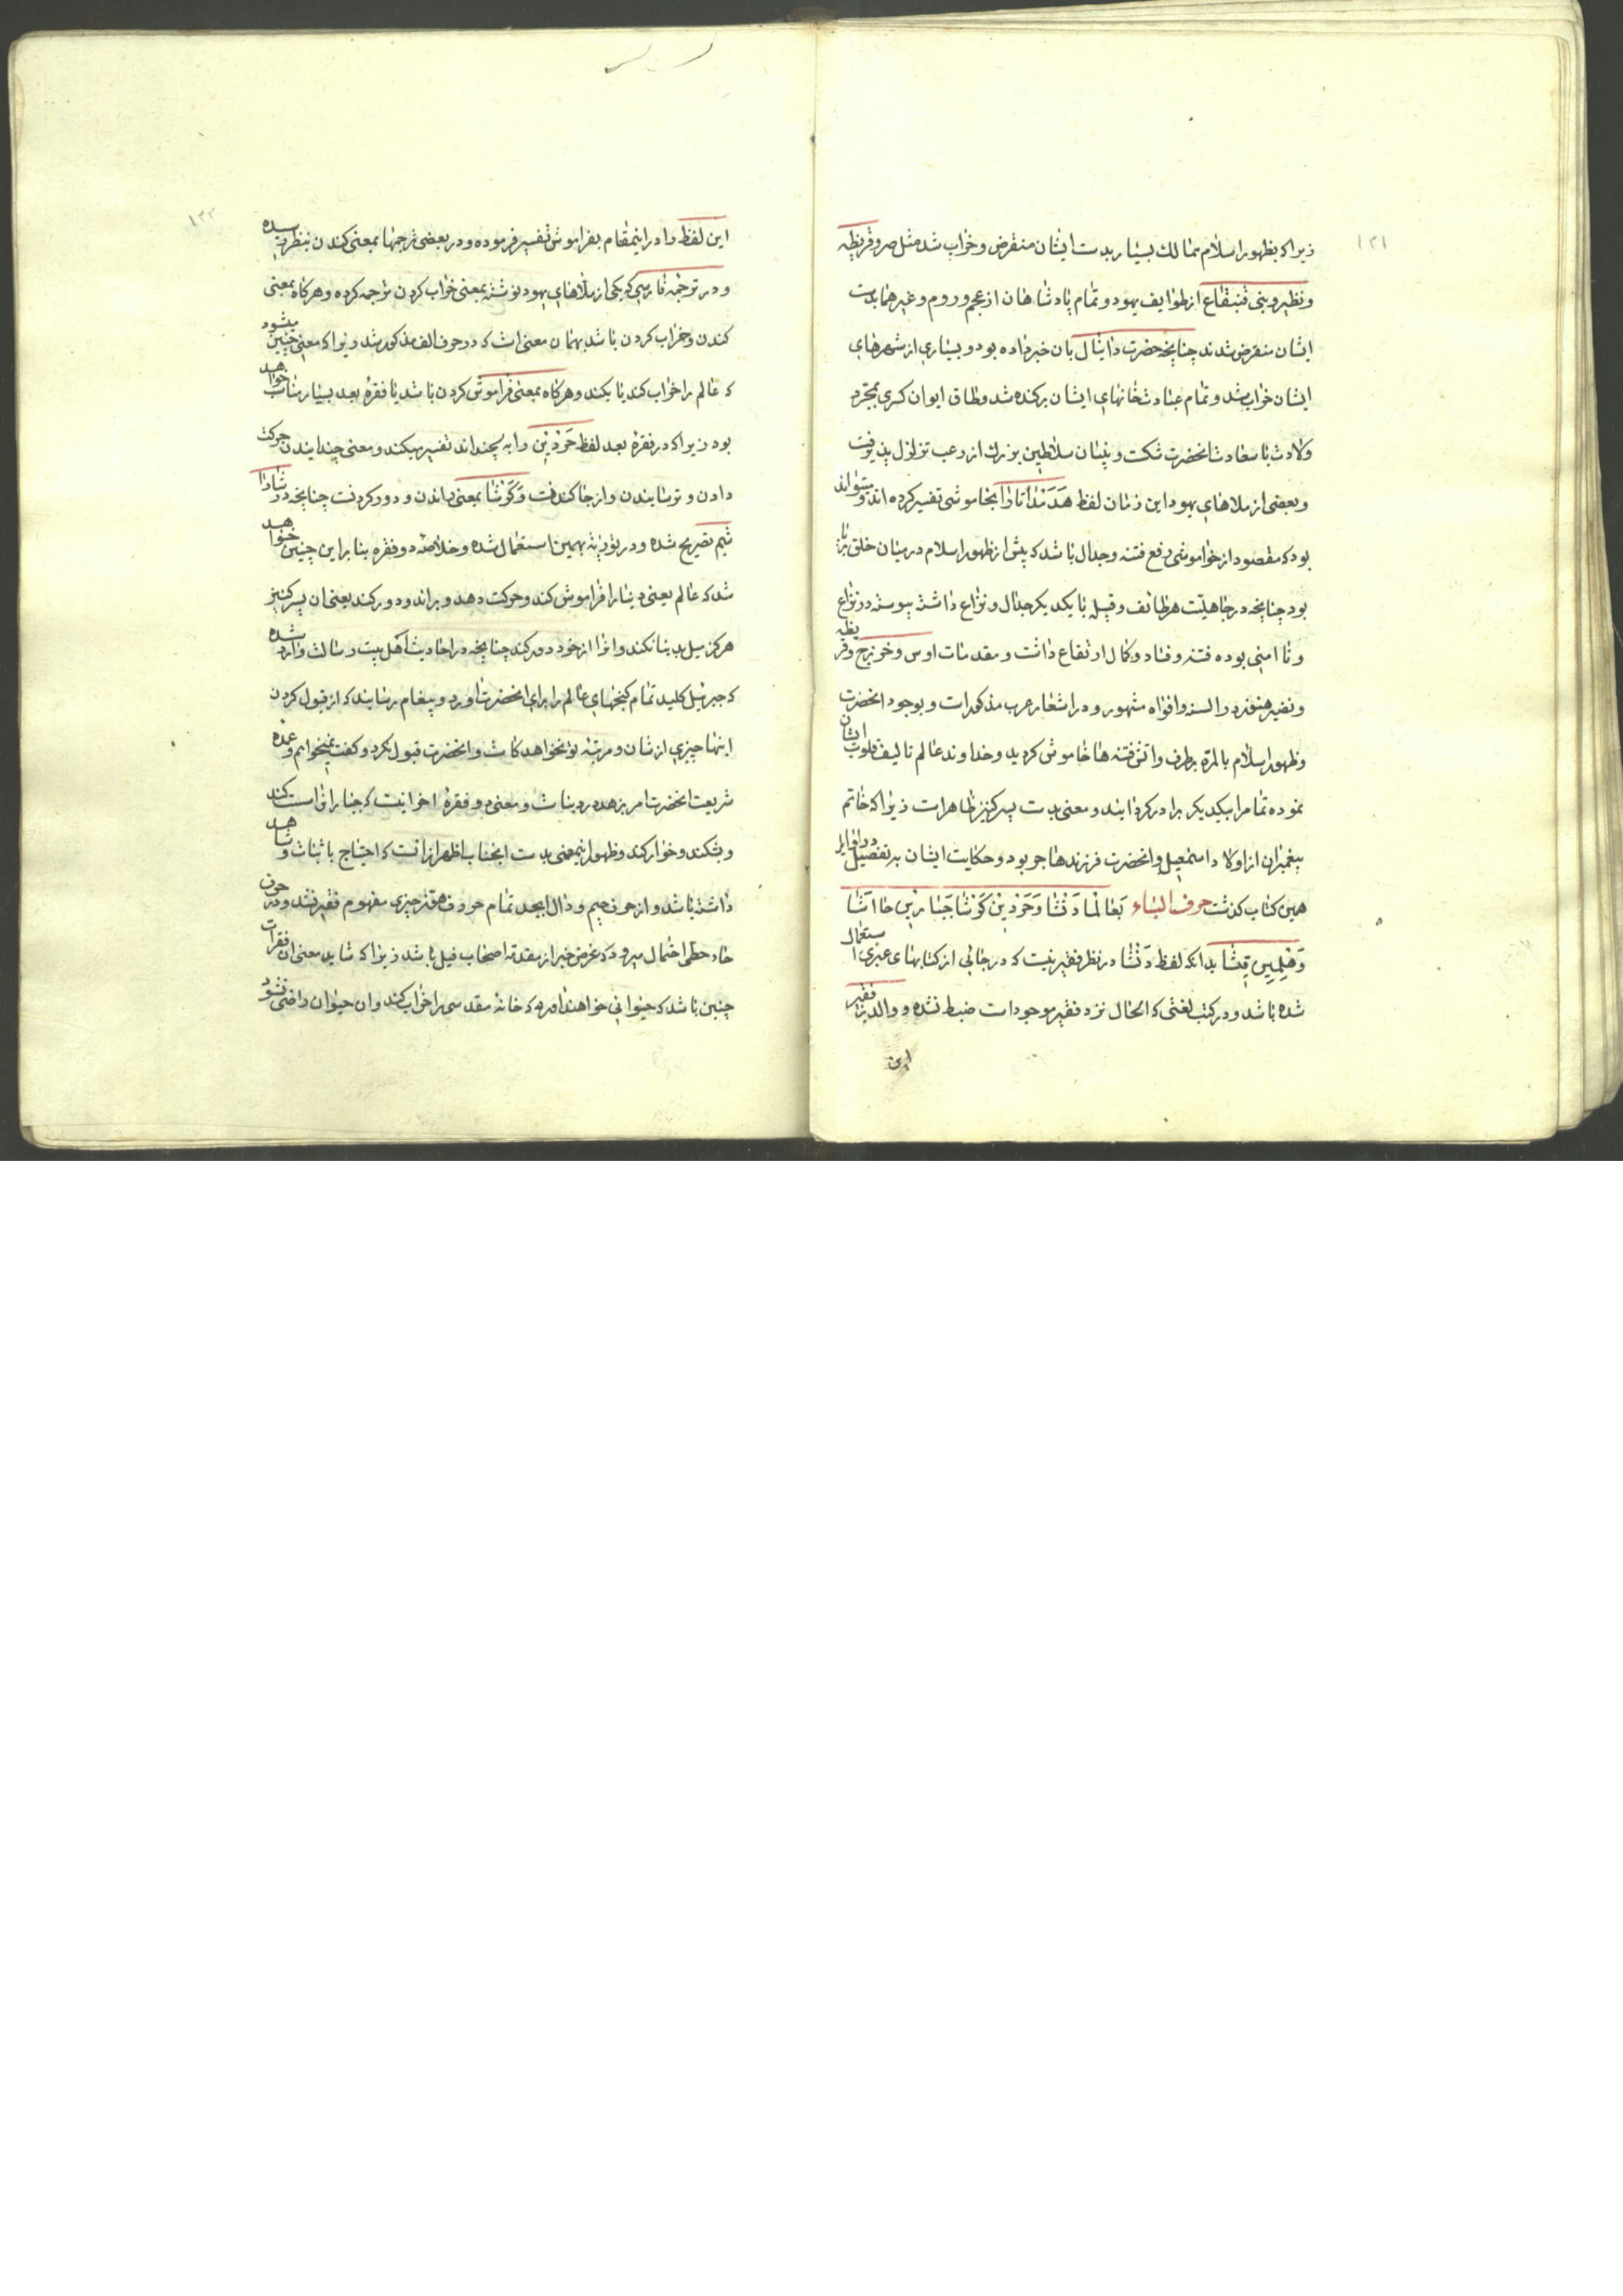 ۱۲۱
زیرا که بظهور اسلام ممالک بسیار بدست ایشان منقرض و خراب شد مثل مصر و قریظه
و نظیر و بنی قینقاع از طوایف یهود و تمام پادشاهان از عجم و روم و غیرهما بدست
ایشان منقرض شدند چنانچه حضرت دانیال بان خبر داده بود و بسیاری از شهرهای
ایشان خراب شد و تمام عبادتخانهای ایشان برکنده شد و طاق ایوان کسری بمجرد
ولادت با سعادت انحضرت شکست و بنیان سلاطین بزرک از رعب تزلزل پذیرفت
و بعضی از ملاهای یهود این زمان لفظ را بخاموشی تفسیر کرده اند و میتواند
بود که مقصود از خواموشی رفع فتنه و جدال باشد که پیش از ظهور اسلام در میان خلق
بود چنانچه در جاهلیت هر طائفه و قبیله با یکدیکر جدال و نزاع داشته پیوسته در نزاع
و نا امنی بوده فتنه و فساد و کمال ارتفاع داشت و مقدمات اوس و خزرج و قریظه
و نضیر هنوز در السنه و افواه مشهور و در اشعار عرب مذکور است و بوجود انحضرت
و ظهور اسلام بالمره برطرف و اتش فتنه ها خاموش کردید و خداوند عالم تالیف قلوب ایشان
نموده تمام را بیکدیکر برادر کردانیدند و معنی پسر کنیز ظاهر است زیرا که خاتم
پیغمبران از اولاد اسمعیل و انحضرت فرزند هاجر بود و حکایت ایشان به تفصیل در اوایل
همین کتاب کذشت حرف الباء بعالما دنشا وحردین کونشا جبارین حا اتشا
وهلیین قشا بدانکه لفظ دنشا در نظر فقیر نیست که در جائی از کتابهای عبری استعمال
شده باشد و در کتب لغتی که الحال نزد فقیر موجود است ضبط نشده و والد فقیر
این
۱۲۲
این لفظ را در اینمقام بفراموش تفسیر فرموده و در بعضی ترجمها بمعنی کندن بنظر رسیده
و در ترجمه فارسی که یکی از ملاهای یهود نوشته بمعنی خراب کردن ترجمه کرده و هرکاه بمعنی
کندن و خراب کردن باشد بهمان معنی است که در حرف الف مذکور شد زیرا که معنی چنین میشود
که عالم را خراب کند یا بکند و هرکاه بمعنی فراموش کردن باشد با فقره بعد بسیار مناسب خواهد
بود زیرا که در فقره بعد لفظ حردین را به چند تفسیر میکنند و معنی جنبانیدن حرکت
دادن و ترسانیدن و از جا کندنست و کونشا بمعنی راندن و دور کردنست چنانچه در
تصریح شده و در توریة بهمین استعمال شده و خلاصه دو فقره بنا بر این چنین خواهد
شد که عالم یعنی دنیا را فراموش کند و حرکت دهد و براند و دور کند یعنی ان پسر کنیز
هرکز میل بدنیا نکند و انرا از خود دور کند چنانچه در احادیث اهل بیت رسالت وارد شده
که جبرئیل کلید تمام کنجهای عالم را برای انحضرت اورد و پیغام رسانید که از قبول کردن
اینها چیزی از شان و مرتبه تو نخواهد کاست و انحضرت قبول نکرد و کفت نمیخواهم و عمده
شریعت انحضرت امر بزهد در دنیاست و معنی دو فقره اخر انیست که جباران را است کند
و بشکند و خوار کند و ظهور اینمعنی بدست انجناب اظهر از انست که احتیاج باثبات و شاهد
داشته باشد و از حرف جیم و دال ابجد تمام حروف هوز چیزی مفهوم فقیر نشد و در حرف
حاء حطی احتمال میرود که غرض خبر از مقدمه اصحاب فیل باشد زیرا که شاید معنی ان فقرات
چنین باشد که حیوانی خواهند اورد که خانه مقدسی را خراب کند و ان حیوان راضی نشود